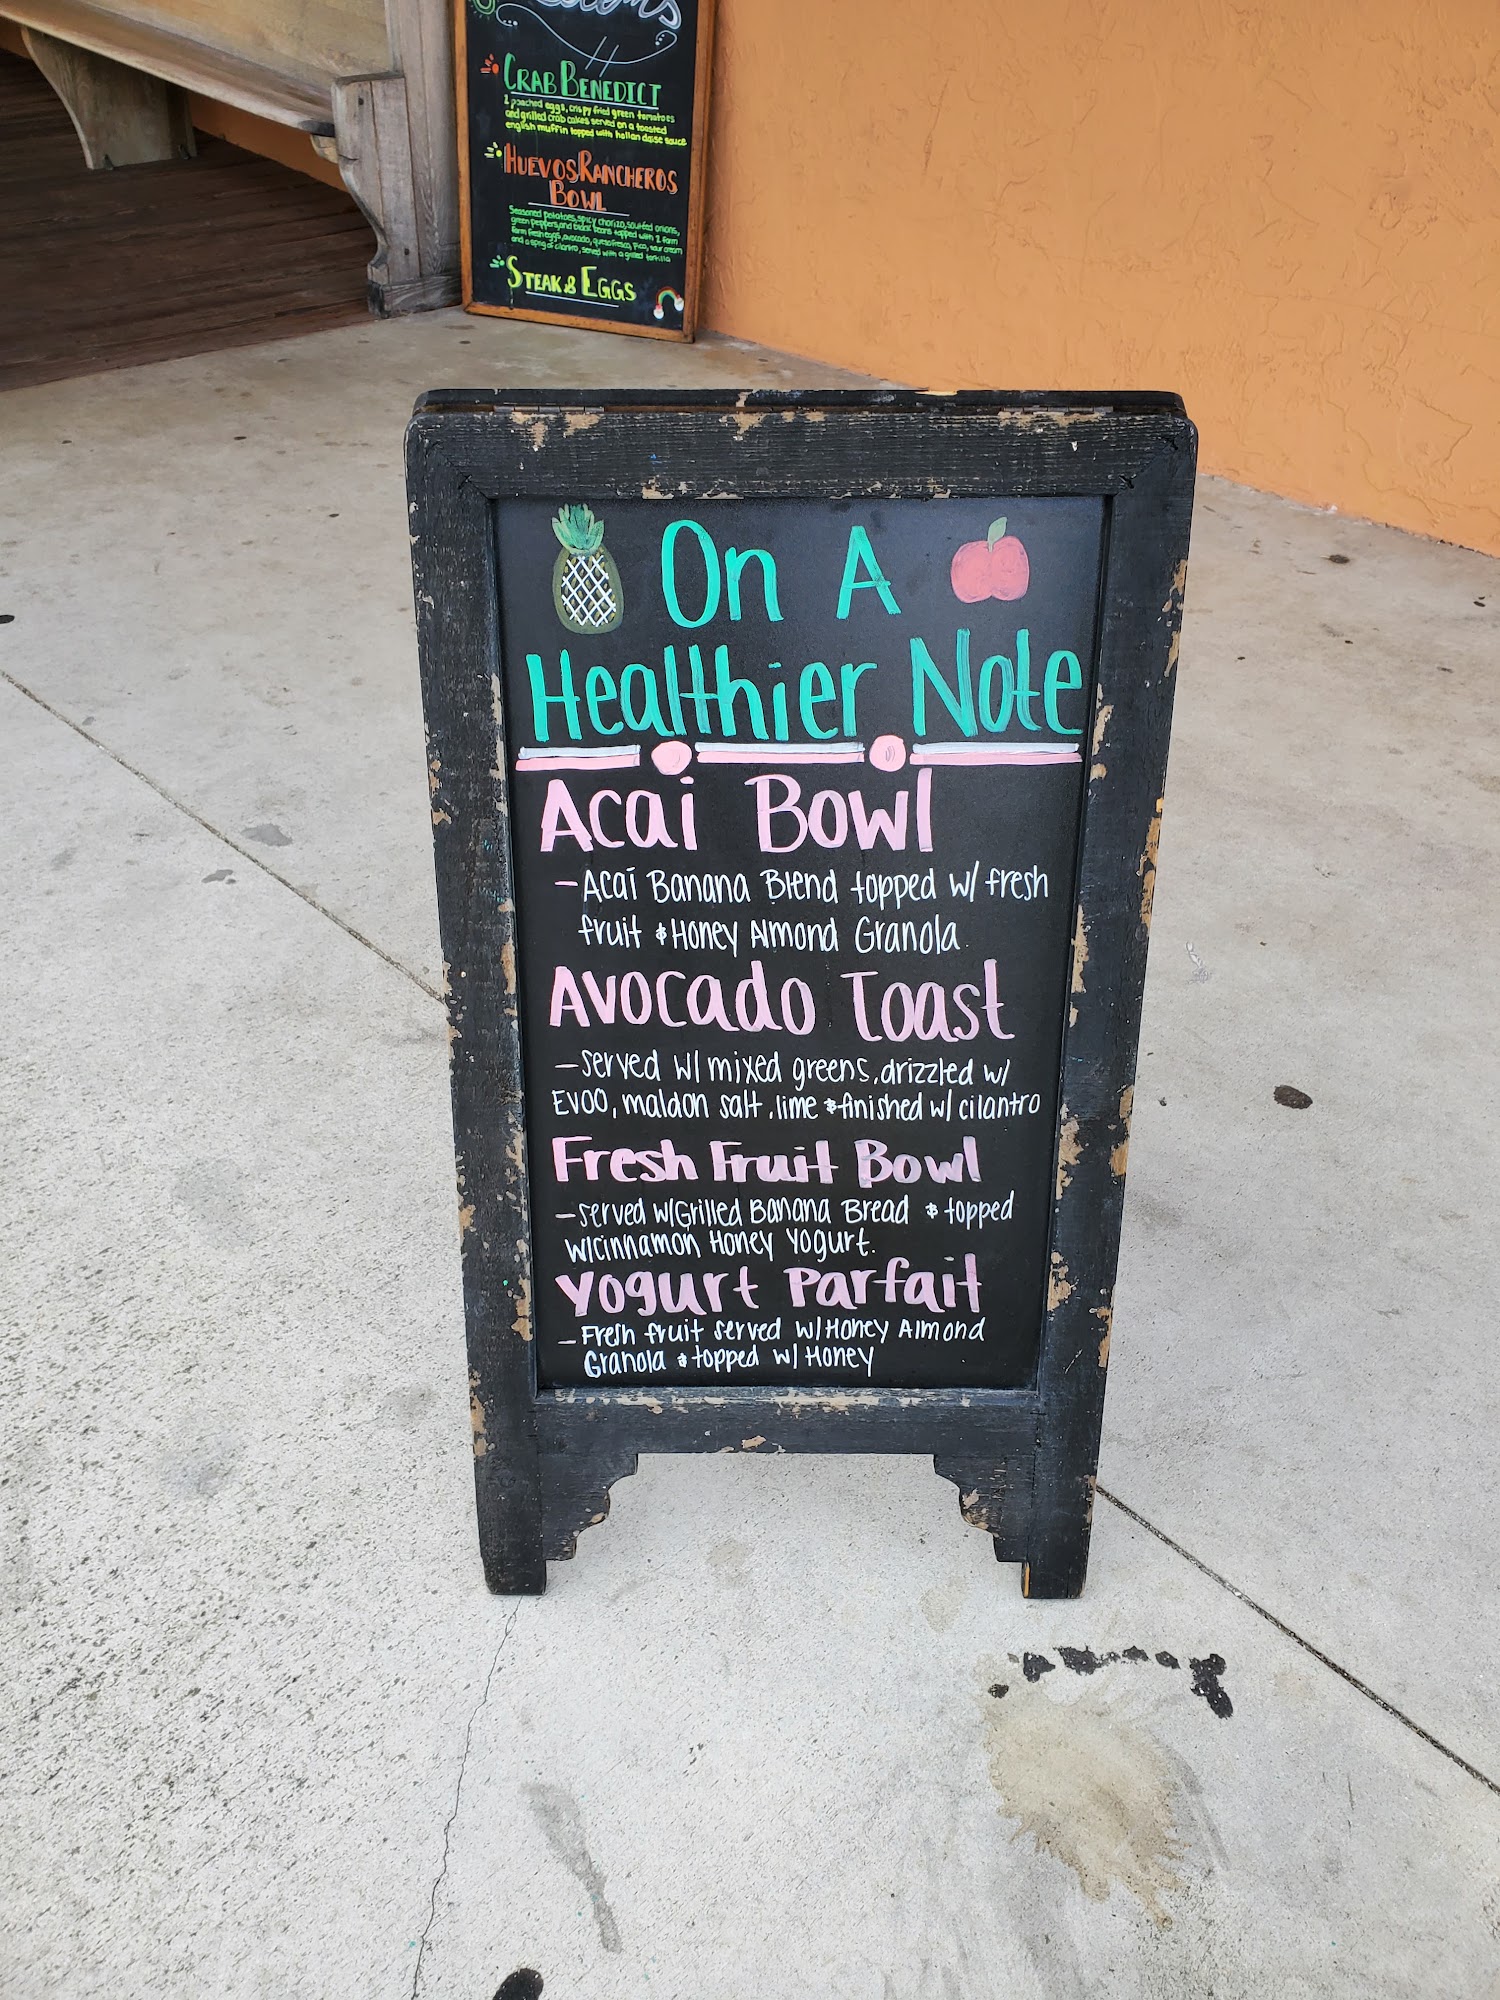 CRAB BENEDICT
2 poached eggs, crispy fried green tomatoes
and grilled crab cakes served on a toasted
english muffin topped with hollandaise sauce
HUEVOS RANCHEROS
BOWL
Seasoned potatoes, spicy chorizo, sautéed onions,
green peppers, and black beans topped with 2 farm
farm fresh eggs, avocado, queso fresco, pico, sour cream
and a sprig of cilantro, served with a grilled tortilla
STEAK & EGGS
On A
Healthier Note
Acai Bowl
- Acai Banana Blend topped w/ fresh
fruit & Honey Almond Granola.
Avocado Toast
- served w/ mixed greens, drizzled w/
EVOO, maldon salt, lime & finished w/ cilantro
Fresh Fruit Bowl
- served w/ Grilled Banana Bread & topped
w/ cinnamon Honey Yogurt.
Yogurt Parfait
- Fresh fruit served w/ Honey Almond
Granola & topped w/ Honey